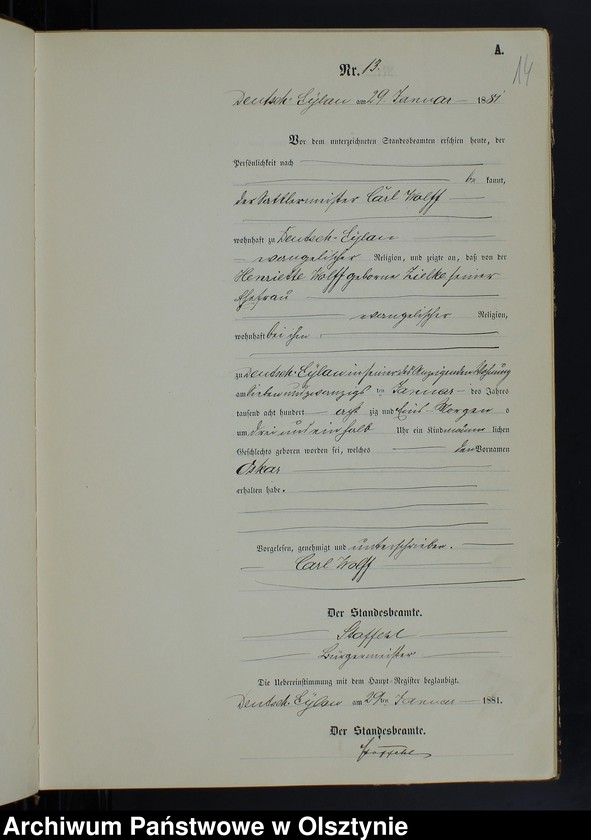 A.
14
Nr. 13.
Deutsch-Eylau am 29. Januar 1881
Vor dem unterzeichneten Standesbeamten erschien heute, der
Persönlichkeit nach
be kannt,
der Sattlermeister Carl Wolff
wohnhaft zu Deutsch-Eylau
evangelischer Religion, und zeigte an, daß von der
Henriette Wolff geborne Zielke seiner
Ehefrau
evangelischer Religion,
wohnhaft bei ihm
zu Deutsch-Eylau in seiner des Anzeigenden Wohnung
am sieben und zwanzigsten Januar des Jahres
tausend acht hundert acht zig und Eins Morgens
um drei und ein halb Uhr ein Kind männ lichen
Geschlechts geboren worden sei, welches den Vornamen
Oskar
erhalten habe.
Vorgelesen, genehmigt und unterschrieben.
Carl Wolff
Der Standesbeamte.
Staffehl
Bürgermeister
Die Uebereinstimmung mit dem Haupt-Register beglaubigt.
Deutsch-Eylau am 29ten Januar 1881.
Der Standesbeamte.
Staffehl
Archiwum Państwowe w Olsztynie